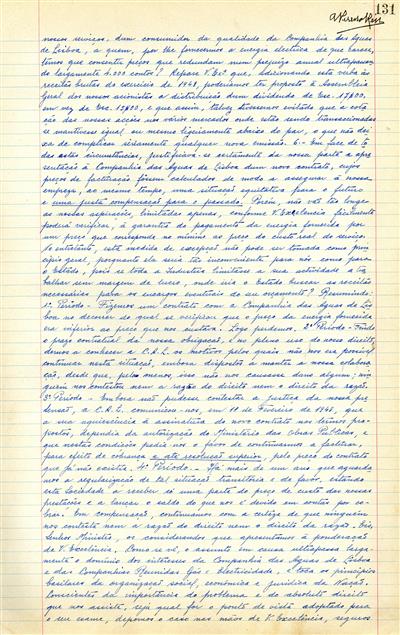 131
nossos serviços, dum consumidor da qualidade da Companhia das Aguas
de Lisboa, a quem, por lhe fornecermos a energia electrica de que carece,
temos que consentir preços que redundam num prejuizo anual ultrapassan-
do largamente 4.000 contos? Repare V. Exª que, adicionando esta verba às
receitas brutas do exercicio de 1947, poderiamos ter proposto à Assembleia
Geral dos nossos accionistas a distribuição dum dividendo de Esc. 17$00,
em vez de Esc. 12$00, e que assim, talvez tivessemos evitado que a cota-
ção das nossas acções nos vários mercados onde estão sendo transaccionadas
se mantivesse igual ou mesmo ligeiramente abaixo do par, o que não dei-
xa de complicar sèriamente qualquer nova emissão. 6- Em face de to-
das estas circunstâncias, justificava-se sèriamente da nossa parte a apre-
sentação à Companhia das Aguas de Lisboa dum novo contrato, cujos
preços de facturação foram calculados de modo a assegurar à nossa
empresa, ao mesmo tempo, uma situação equitativa para o futuro
e uma justa compensação para o passado. Porém, não vão tão longe
as nossas aspirações, limitadas apenas, conforme V. Excelência facilmente
poderá verificar, à garantia do pagamento da energia fornecida por
um preço que corresponda no minimo ao preço do custo real do serviço.
No entanto, esta medida de excepção não pode ser tomada como prin-
cipio geral, porquanto ela seria tão inconveniente para nós como para
o Estado, pois se toda a industria limitasse a sua actividade a tra-
balhar sem margem de lucro, onde iria o Estado buscar as receitas
necessárias para os encargos eventuais do seu orçamento? Resumindo:
1º Periodo - Fizemos um contrato com a Companhia das Aguas de Lis-
boa no decorrer do qual se verificou que o preço da energia fornecida
era inferior ao preço que nos custava. Logo perdemos. 2º Periodo - Findo
o prazo contratual da nossa obrigação, e no pleno uso do nosso direito,
demos a conhecer à C.A.L. os motivos pelos quais não nos era possivel
continuar nesta situação, embora dispostos a manter a nossa colabora-
ção, desde que, pelo menos, isso não nos causasse dano algum; nin-
guém nos contestou nem a razão do direito nem o direito da razão.
3º Periodo - Embora não pudesse contestar a justiça da nossa pre-
tensão, a C.A.L. comunicou-nos, em 10 de Fevereiro de 1948, que
a sua aquiescência à assinatura do novo contrato nos termos pro-
postos, dependia da autorização do Ministério das Obras Públicas, e
que nestas condições pedia-nos o favor de continuarmos a facturar,
para efeito de cobrança e até resolução superior, pelo preço do contrato
que já não existia. 4º Periodo - Há mais de um ano que aguarda-
mos a regularização de tal situação transitória e de favor, estando
esta Sociedade a receber só uma parte do preço de custo das nossas
prestações e a lançar o saldo do que nos é devido em contas por co-
brar. Em compensação, continuamos com a certeza de que ninguém
nos contesta nem a razão do direito nem o direito da razão. Eis,
Senhor Ministro, os considerandos que apresentamos à ponderação
de V. Excelência. Como se vê, o assunto em causa ultrapassa larga-
mente o dominio dos interesses da Companhia das Aguas de Lisboa
e das Companhias Reunidas Gás e Electricidade, e toca os principios
basilares da organização social, económica e juridica da Nação.
Conscientes da importância do problema e do absoluto direito
que nos assiste, seja qual for o ponto de vista adoptado para
o seu exame, depomos o caso nas mãos de V. Excelência, seguros